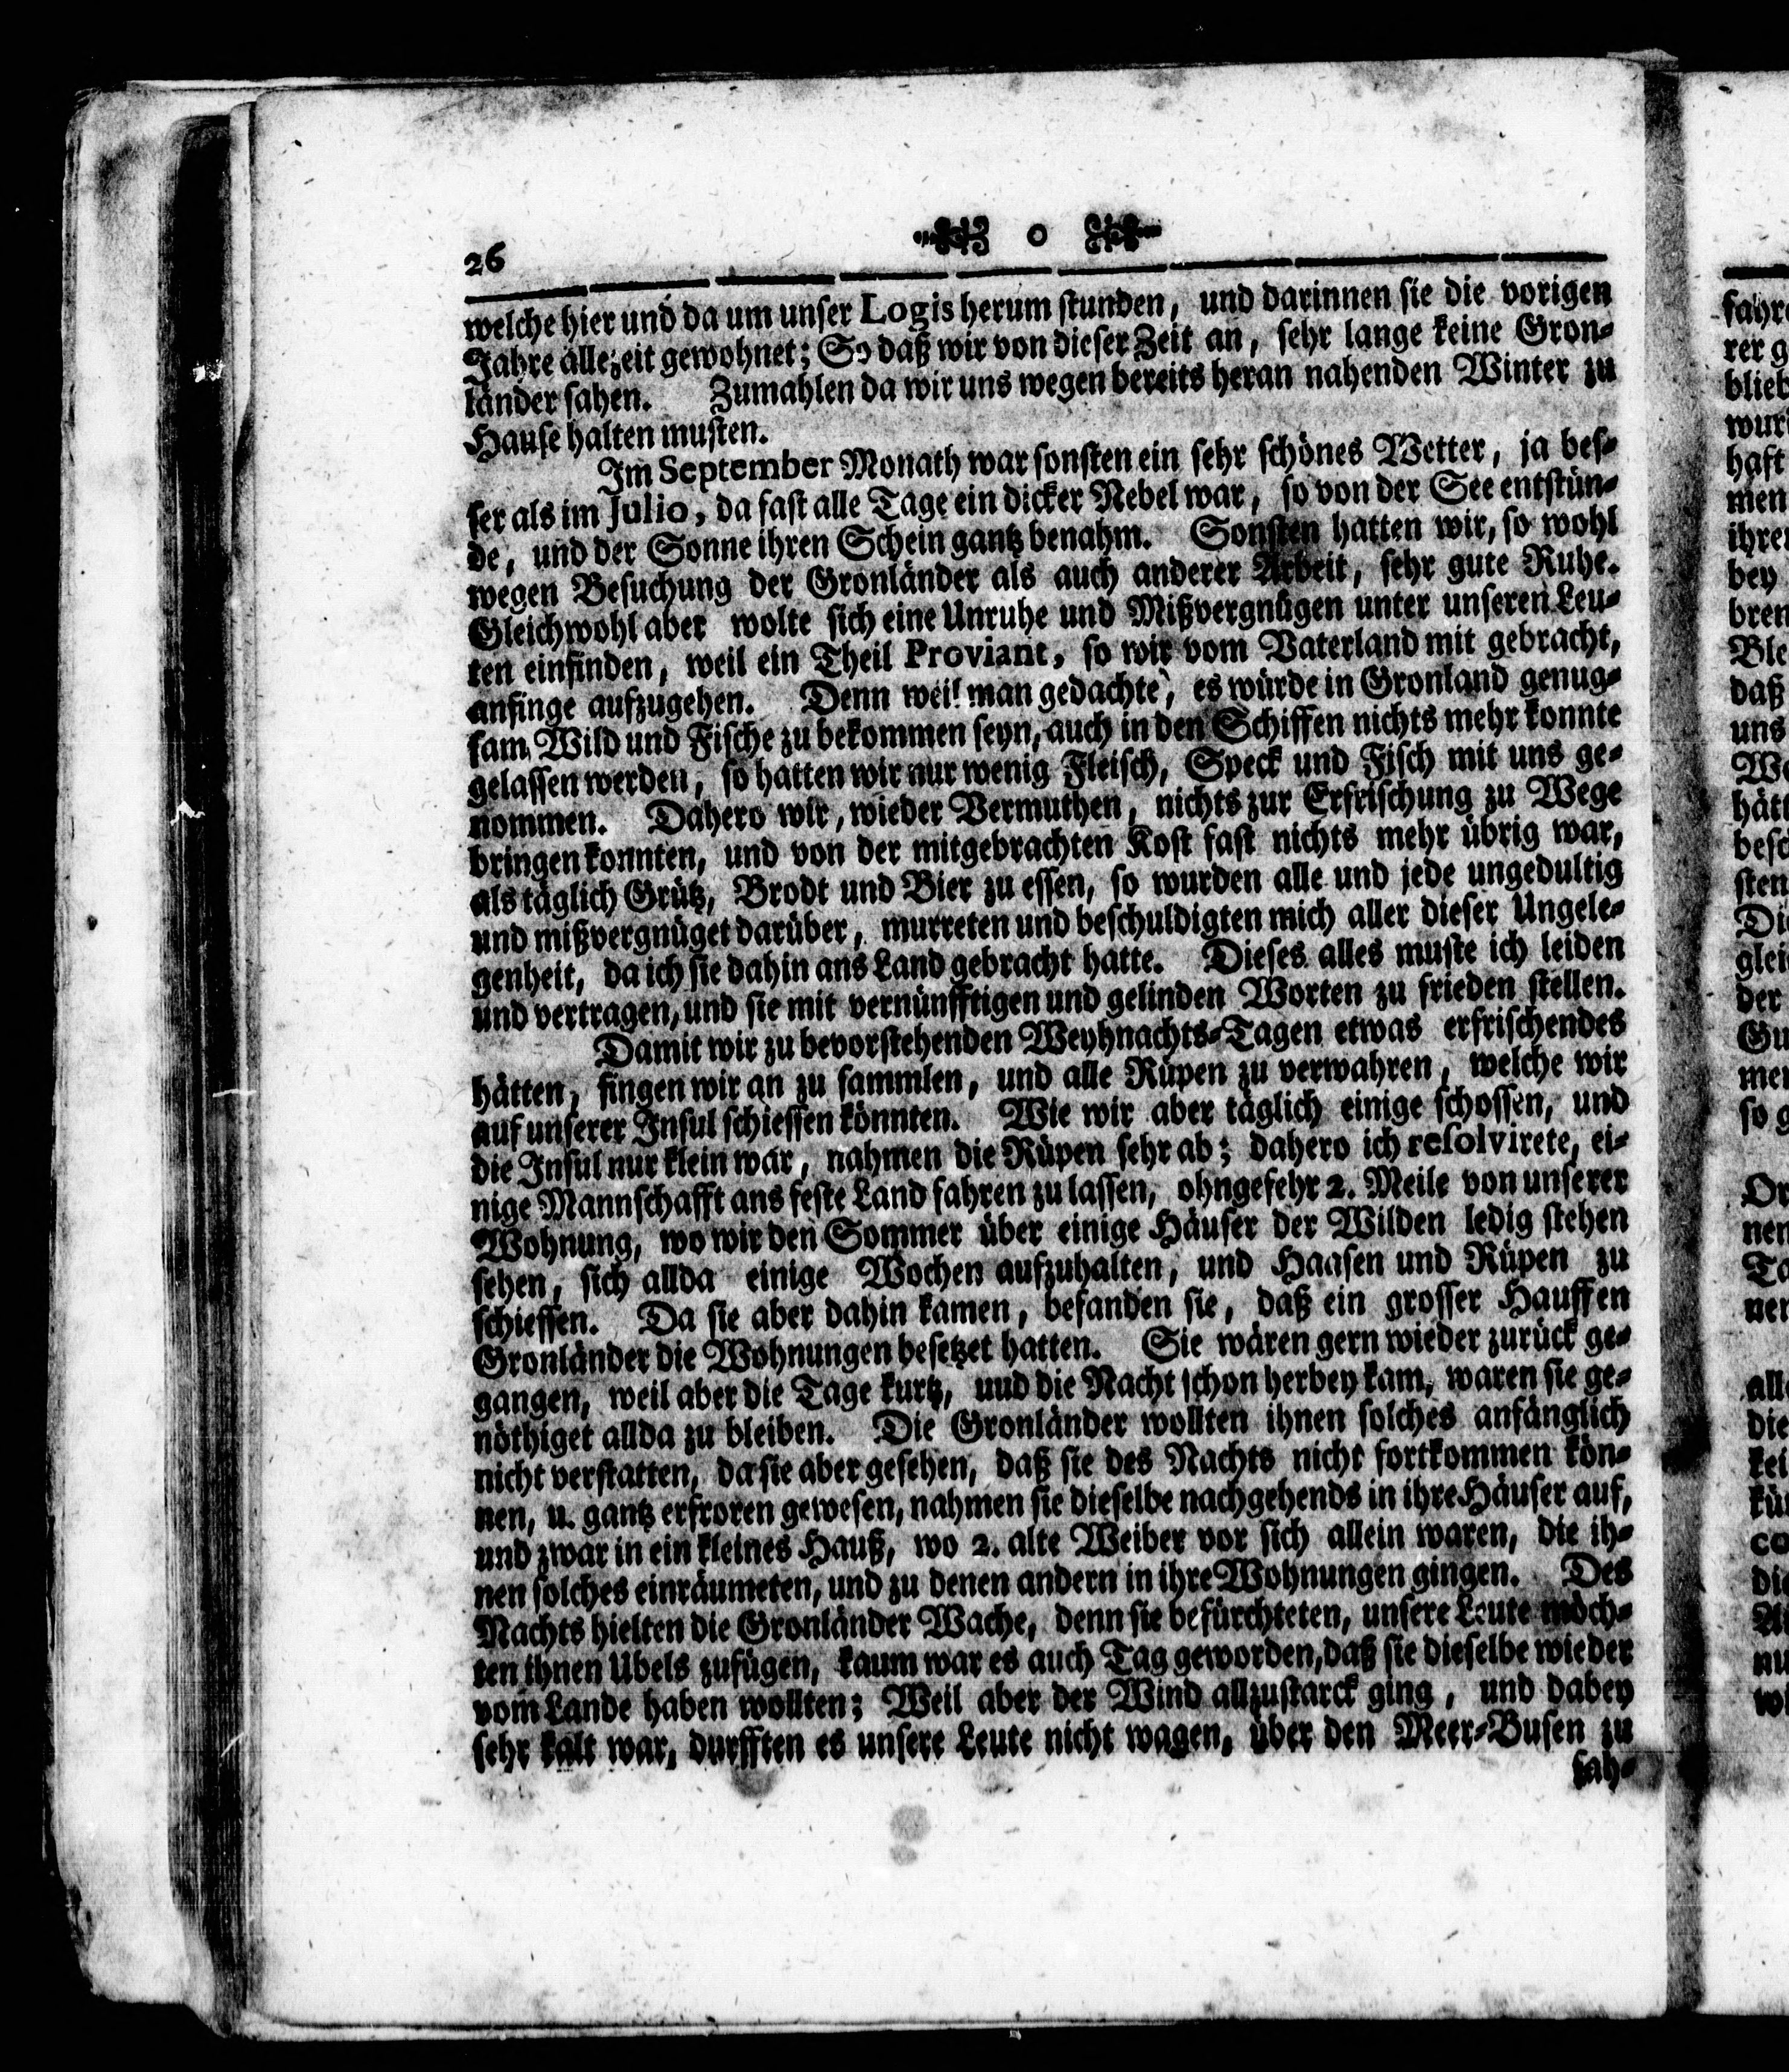 26 o
welche hier und da um unser Logis herum stunden, und darinnen sie die vorigen
Jahre allezeit gewohnet; So daß wir von dieser Zeit an, sehr lange keine Gron-
länder sahen. Zumahlen da wir uns wegen bereits heran nahenden Winter zu
Hause halten musten.
Im September Monath war sonsten ein sehr schönes Wetter, ja bes-
ser als im Julio, da fast alle Tage ein dicker Nebel war, so von der See entstün-
de, und der Sonne ihren Schein gantz benahm. Sonsten hatten wir, so wohl
wegen Besuchung der Gronländer als auch anderer Arbeit, sehr gute Ruhe.
Gleichwohl aber wolte sich eine Unruhe und Mißvergnügen unter unseren Leu-
ten einfinden, weil ein Theil Proviant, so wir vom Vaterland mit gebracht,
anfinge aufzugehen. Denn weil man gedachte, es würde in Gronland genug-
sam Wild und Fische zu bekommen seyn, auch in den Schiffen nichts mehr konnte
gelassen werden, so hatten wir nur wenig Fleisch, Speck und Fisch mit uns ge-
nommen. Dahero wir, wieder Vermuthen, nichts zur Erfrischung zu Wege
bringen konnten, und von der mitgebrachten Kost fast nichts mehr übrig war,
als täglich Grütz, Brodt und Bier zu essen, so wurden alle und jede ungedultig
und mißvergnüget darüber, murreten und beschuldigten mich aller dieser Ungele-
genheit, da ich sie dahin ans Land gebracht hatte. Dieses alles muste ich leiden
und vertragen, und sie mit vernünfftigen und gelinden Worten zu frieden stellen.
Damit wir zu bevorstehenden Weyhnachts-Tagen etwas erfrischendes
hätten, fingen wir an zu sammlen, und alle Rüpen zu verwahren, welche wir
auf unserer Insul schiessen könnten. Wie wir aber täglich einige schossen, und
die Insul nur klein war, nahmen die Rüpen sehr ab; dahero ich resolvirete, ei-
nige Mannschafft ans feste Land fahren zu lassen, ohngefehr 2. Meile von unserer
Wohnung, wo wir den Sommer über einige Häuser der Wilden ledig stehen
sehen, sich allda einige Wochen aufzuhalten, und Haasen und Rüpen zu
schiessen. Da sie aber dahin kamen, befanden sie, daß ein grosser Hauffen
Gronländer die Wohnungen besetzet hatten. Sie wären gern wieder zurück ge-
gangen, weil aber die Tage kurtz, uud die Nacht schon herbey kam, waren sie ge-
nöthiget allda zu bleiben. Die Gronländer wollten ihnen solches anfänglich
nicht verstatten, da sie aber gesehen, daß sie des Nachts nicht fortkommen kön-
nen, u. gantz erfroren gewesen, nahmen sie dieselbe nachgehends in ihre Häuser auf,
und zwar in ein kleines Hauß, wo 2. alte Weiber vor sich allein waren, die ih-
nen solches einräumeten, und zu denen andern in ihre Wohnungen gingen. Des
Nachts hielten die Gronländer Wache, denn sie befürchteten, unsere Leute möch-
ten ihnen Ubels zufügen, kaum war es auch Tag geworden, daß sie dieselbe wieder
vom Lande haben wollten; Weil aber der Wind allzustarck ging, und dabey
sehr kalt war, durfften es unsere Leute nicht wagen, über den Meer-Busen zu
fah-